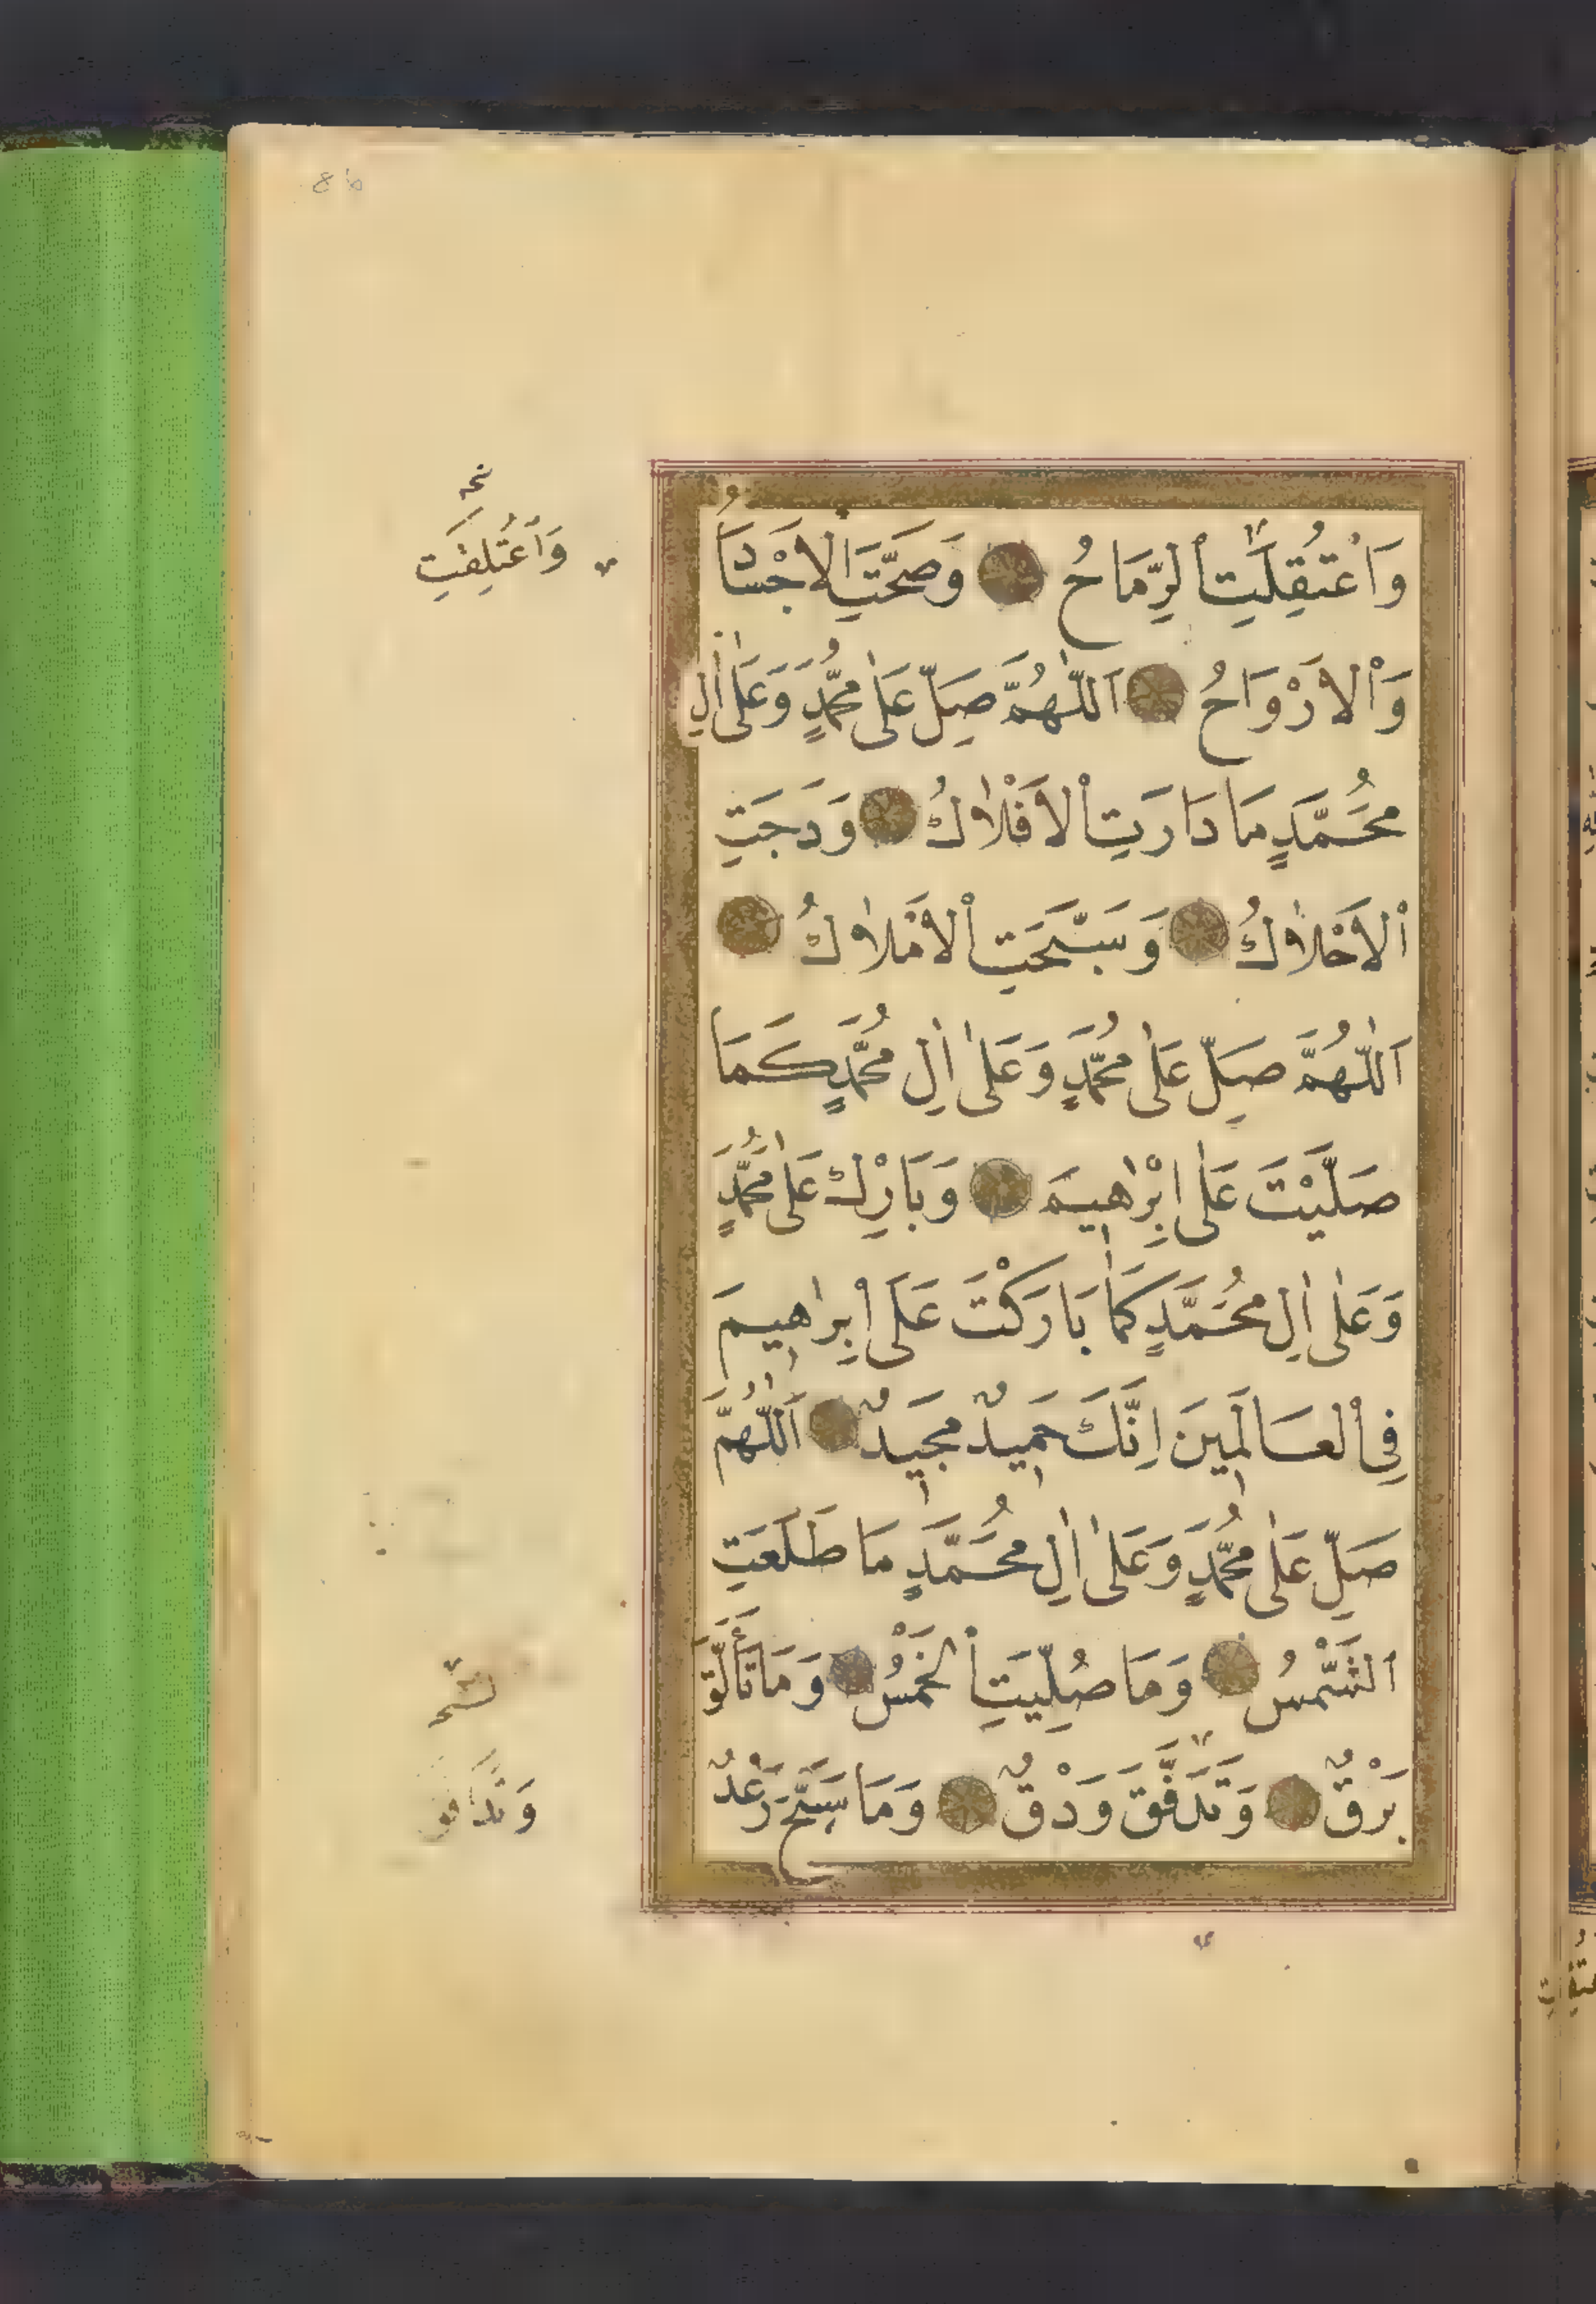 86
وَاعْتُقِلَتِ الرِّمَاحُ وَصَحَّتِ الْاَجْسَادُ
وَالْاَرْوَاحُ اَللّٰهُمَّ صَلِّ عَلٰى مُحَمَّدٍ وَعَلٰى اٰلِ
مُحَمَّدٍ مَا دَارَتِ الْاَفْلَاكُ وَدَجَتِ
الْاَحْلَاكُ وَسَبَّحَتِ الْاَمْلَاكُ
اَللّٰهُمَّ صَلِّ عَلٰى مُحَمَّدٍ وَعَلٰى اٰلِ مُحَمَّدٍ كَمَا
صَلَّيْتَ عَلٰى اِبْرٰهِيمَ وَبَارِكْ عَلٰى مُحَمَّدٍ
وَعَلٰى اٰلِ مُحَمَّدٍ كَمَا بَارَكْتَ عَلٰى اِبْرٰهِيمَ
فِي الْعَالَمِينَ اِنَّكَ حَمِيدٌ مَجِيدٌ اَللّٰهُمَّ
صَلِّ عَلٰى مُحَمَّدٍ وَعَلٰى اٰلِ مُحَمَّدٍ مَا طَلَعَتِ
الشَّمْسُ وَمَا صُلِّيَتِ الْخَمْسُ وَمَا تَأَلَّقَ
بَرْقٌ وَتَدَفَّقَ وَدْقٌ وَمَا سَبَّحَ رَعْدٌ
وَاعْتُلِقَتِ